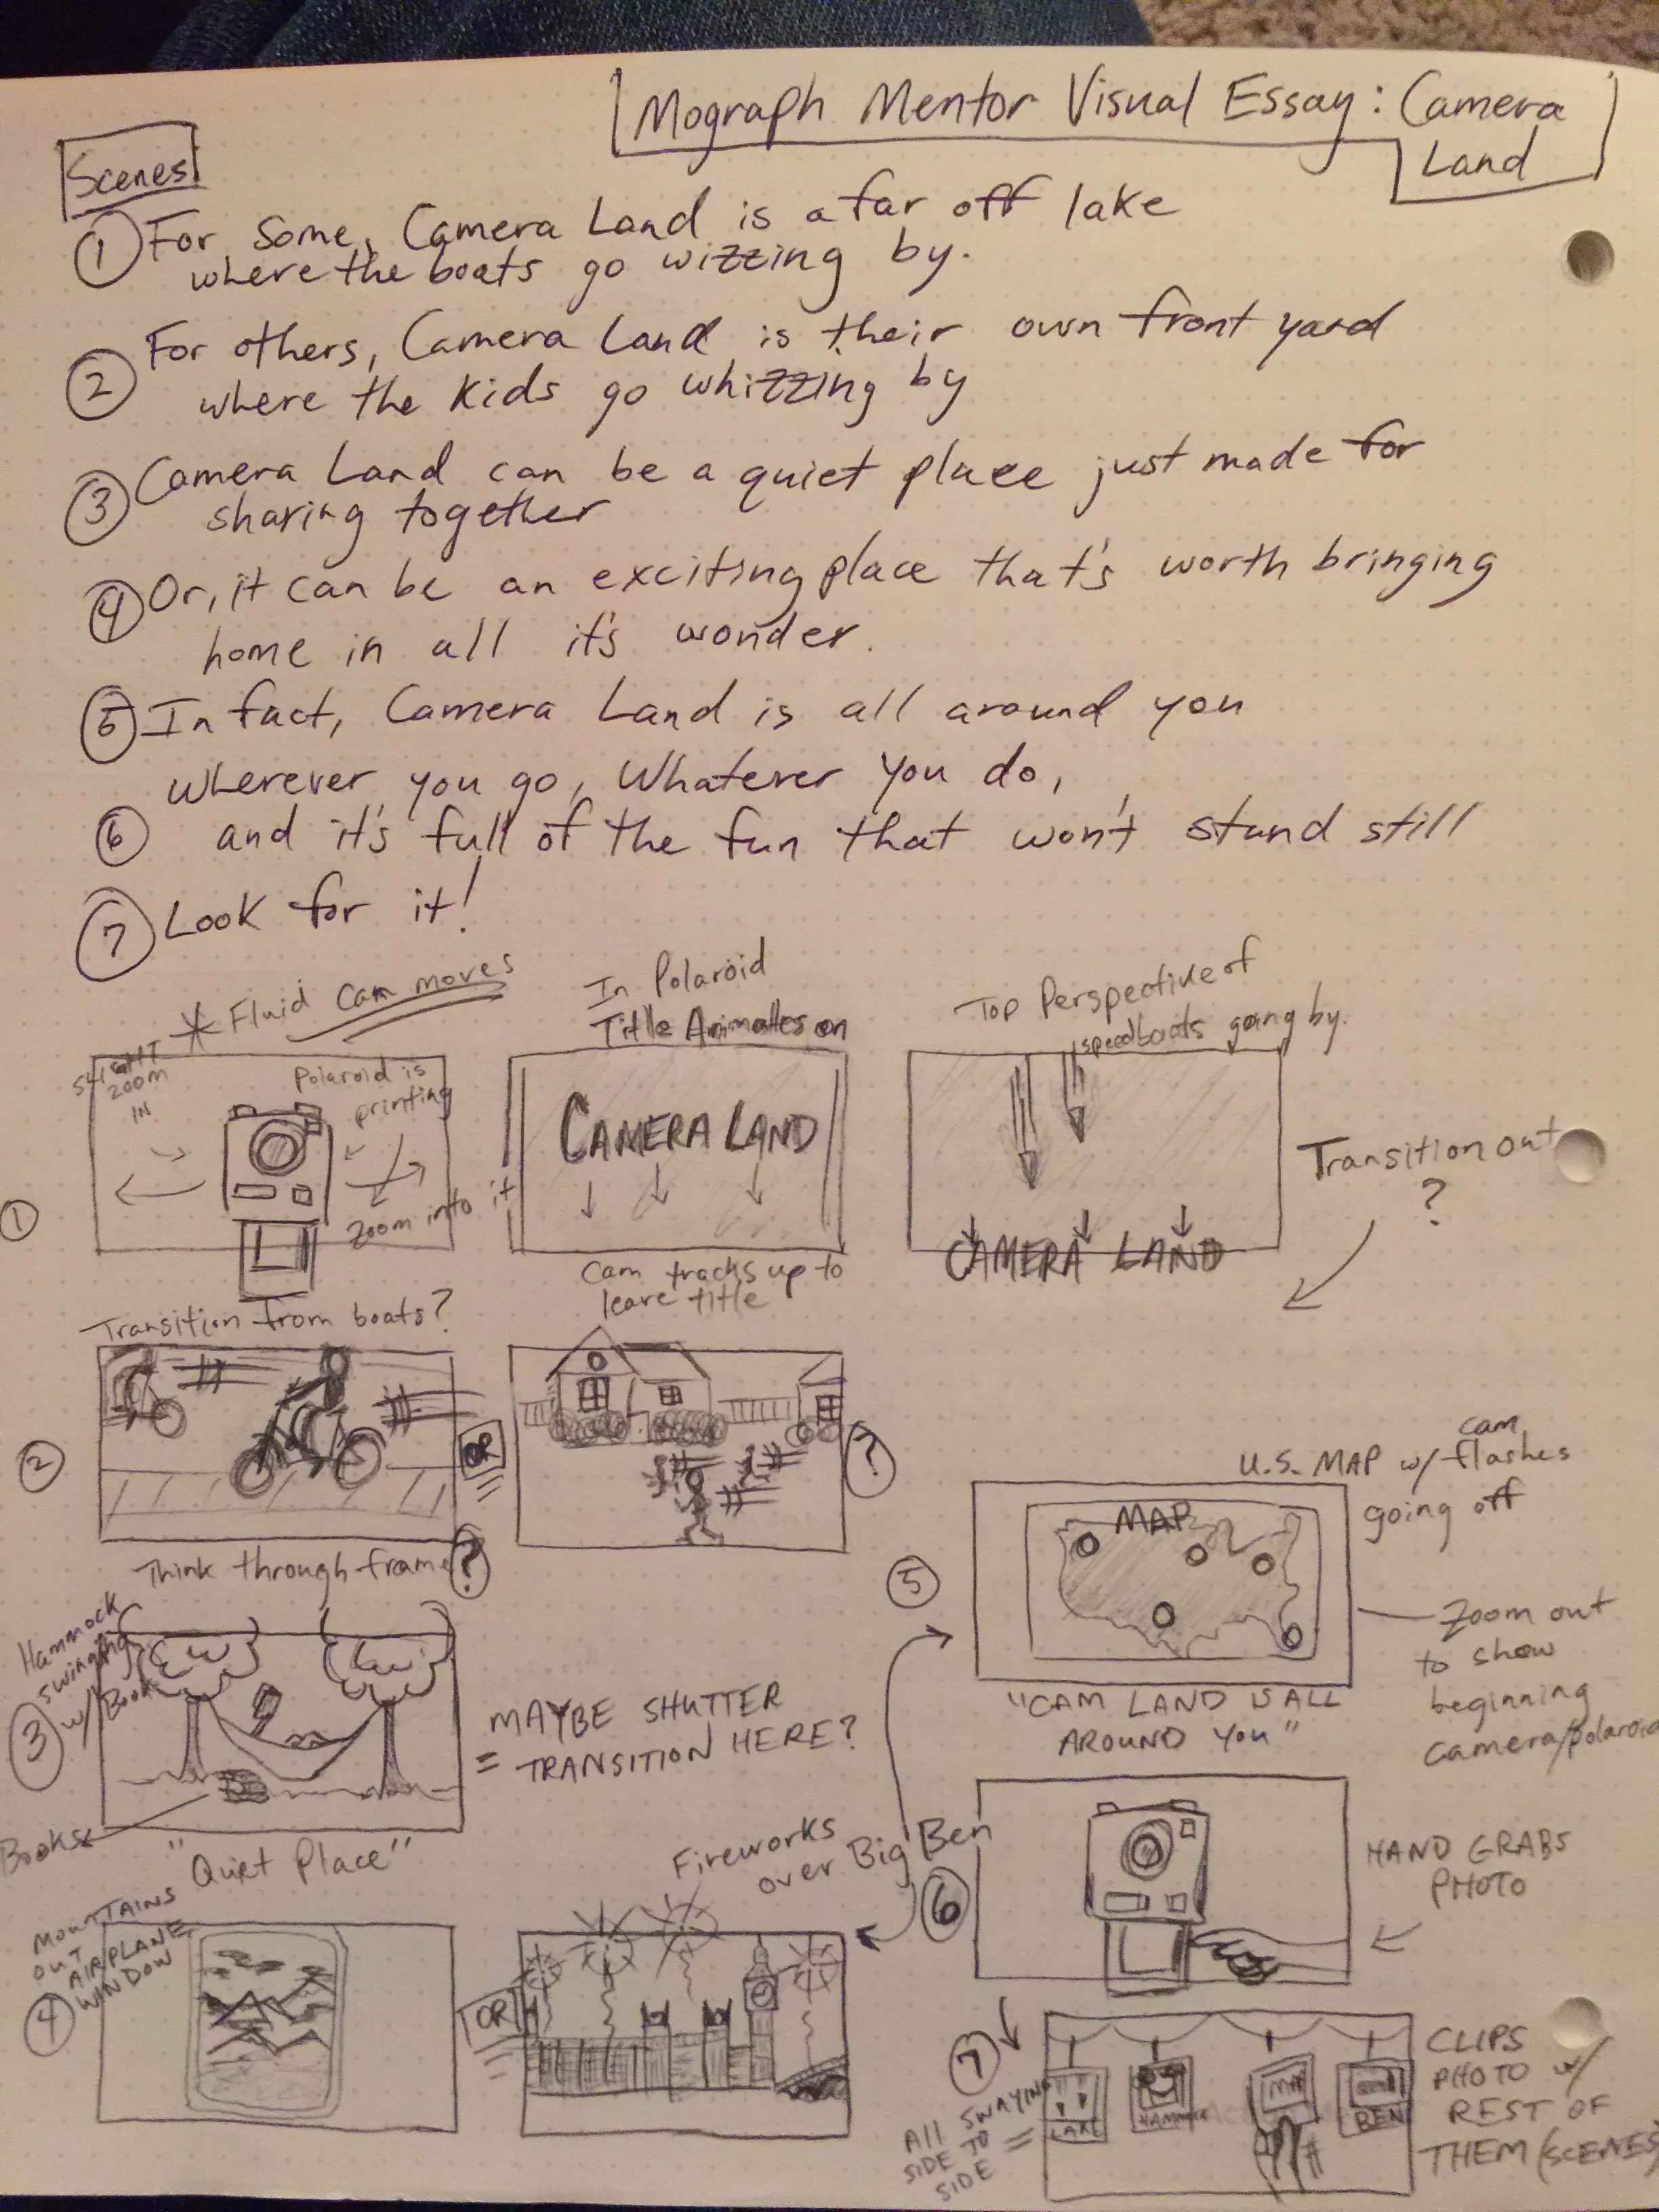 Mograph Mentor Visual Essay: Camera
Land
Scenes
① For some, Camera Land is a far off lake
where the boats go wizzing by.
② For others, Camera Land is their own front yard
where the kids go whizzing by
③ Camera Land can be a quiet place just made for
sharing together
④ Or, it can be an exciting place that's worth bringing
home in all it's wonder.
⑤ In fact, Camera Land is all around you
wherever you go, Whatever you do,
⑥ and it's full of the fun that won't stand still
⑦ Look for it!
* Fluid cam moves
①
Slight
zoom
in
Polaroid is
printing
zoom into it
In Polaroid
Title Animates on
CAMERA LAND
Cam tracks up to
leave title
Top Perspective of
speedboats going by.
CAMERA LAND
Transition out
?
Transition from boats?
②
OR
?
Think through frame?
③
Hammock
swinging
w/ Book
Books
"Quiet Place"
= MAYBE SHUTTER
TRANSITION HERE?
④
MOUNTAINS
OUT
AIRPLANE
WINDOW
OR
Fireworks
over Big Ben
⑤
U.S. MAP w/ cam
flashes
going off
MAP
"CAM LAND IS ALL
AROUND YOU"
Zoom out
to show
beginning
camera/polaroid
⑥
HAND GRABS
PHOTO
⑦
All SWAYING
SIDE TO
SIDE =
LAKE
HAMMOCK
MAP
BEN
CLIPS
PHOTO w/
REST OF
THEM (SCENES)